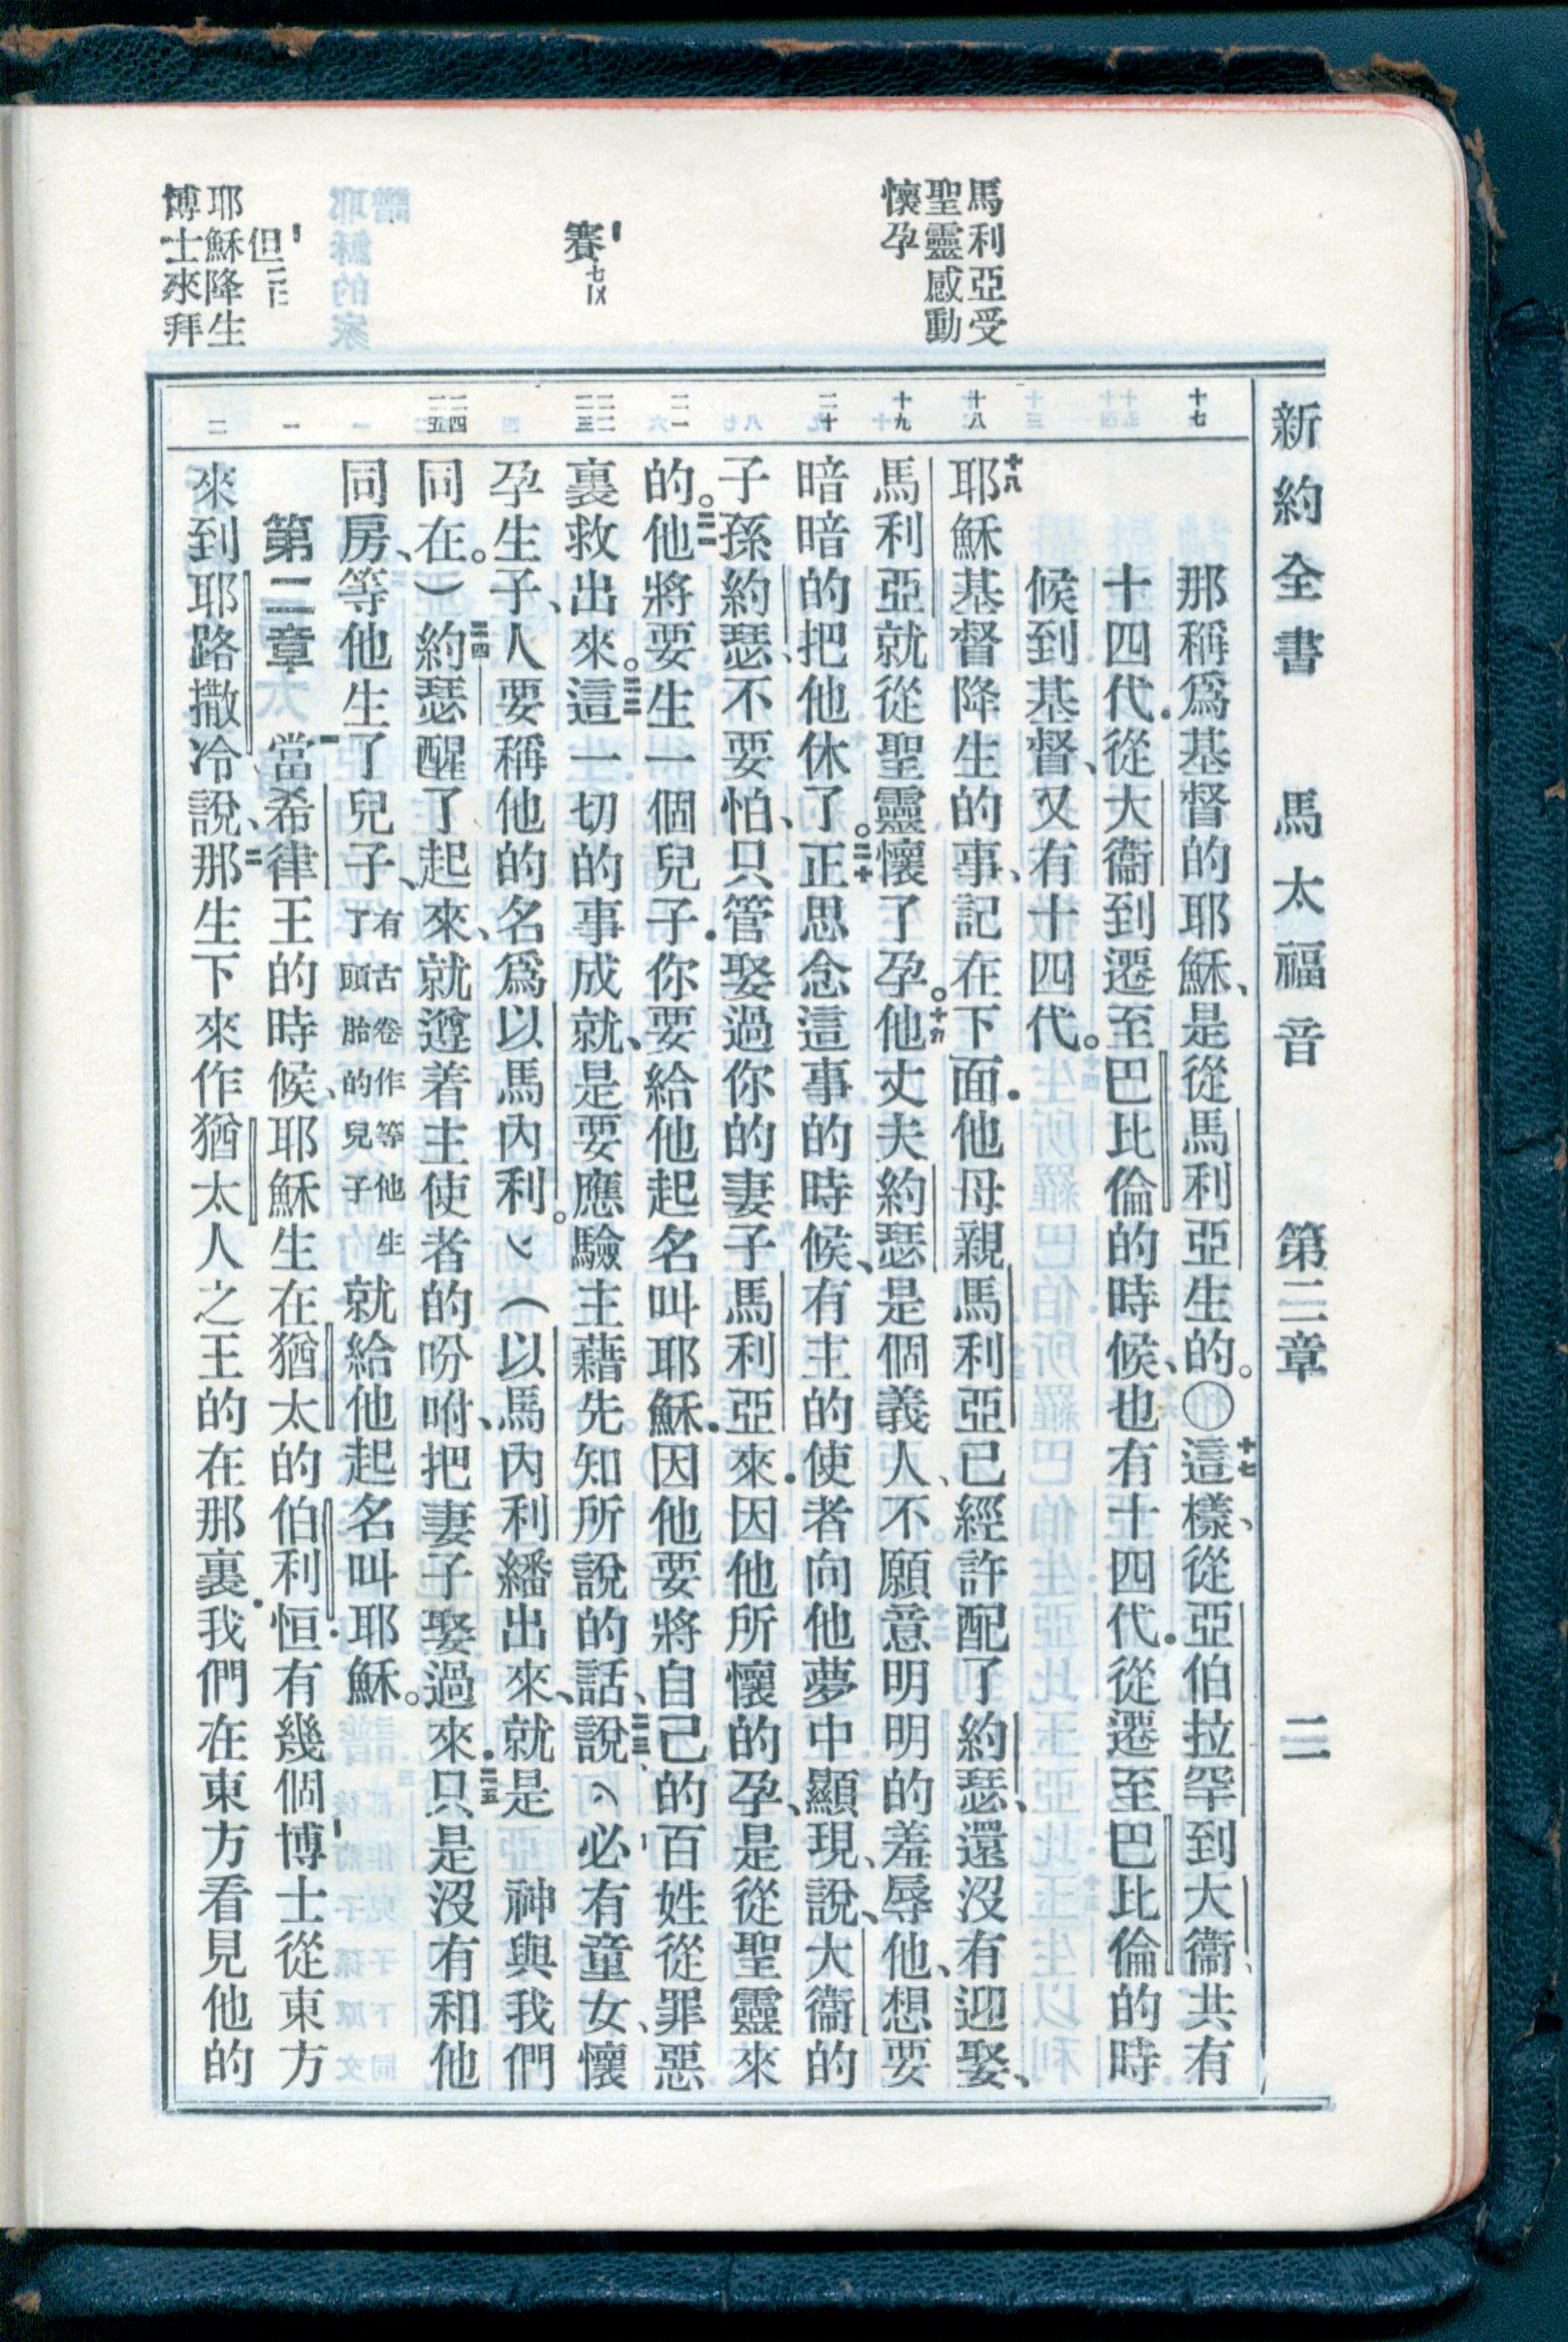 新約全書 馬太福音 第二章 二
馬利亞受
聖靈感動
懷孕
賽七
但二
耶穌降生
博士來拜
十七
十八
十九
二十
二一
二二
二三
二四
二五
一
二
那稱爲基督的耶穌、是從馬利亞生的。〇十七這樣、從亞伯拉罕到大衞、共有
十四代．從大衞到遷至巴比倫的時候、也有十四代．從遷至巴比倫的時
候到基督、又有十四代。
十八耶穌基督降生的事、記在下面．他母親馬利亞已經許配了約瑟、還沒有迎娶、
馬利亞就從聖靈懷了孕。十九他丈夫約瑟是個義人、不願意明明的羞辱他、想要
暗暗的把他休了。二十正思念這事的時候、有主的使者向他夢中顯現、說、大衞的
子孫約瑟、不要怕、只管娶過你的妻子馬利亞來．因他所懷的孕、是從聖靈來
的。二一他將要生一個兒子．你要給他起名叫耶穌．因他要將自己的百姓從罪惡
裏救出來。二二這一切的事成就、是要應驗主藉先知所說的話、二三說、『必有童女、懷
孕生子、人要稱他的名爲以馬內利。』（以馬內利繙出來、就是　神與我們
同在。）二四約瑟醒了起來、就遵着主使者的吩咐、把妻子娶過來．二五只是沒有和他
同房、等他生了兒子、有古卷作等他生了頭胎的兒子就給他起名叫耶穌。
第二章　一當希律王的時候、耶穌生在猶太的伯利恒．有幾個博士從東方
來到耶路撒冷說、二那生下來作猶太人之王的在那裏．我們在東方看見他的